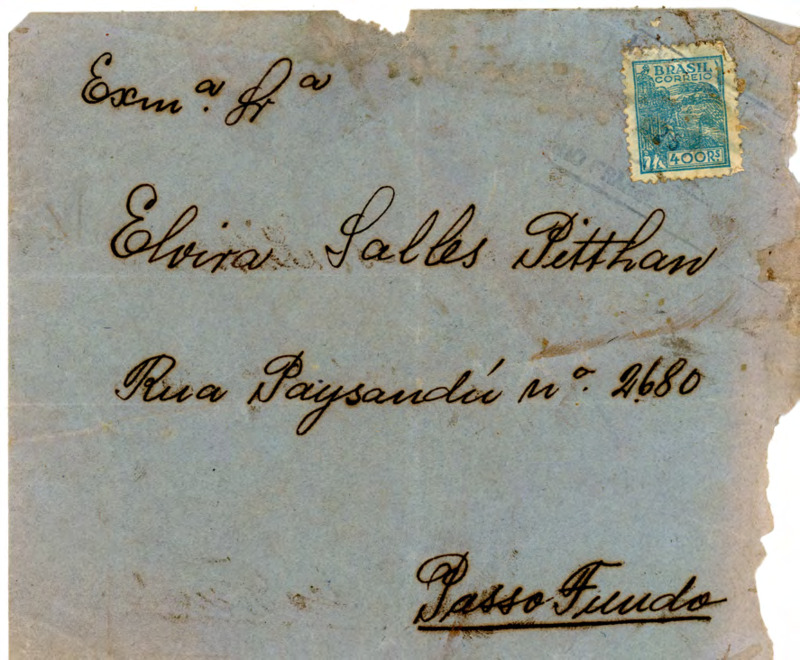 Exmª. Srª
BRASIL
CORREIO
400 RS
Elvira Salles Pitthan
Rua Paysandú nº. 2680
Passo Fundo